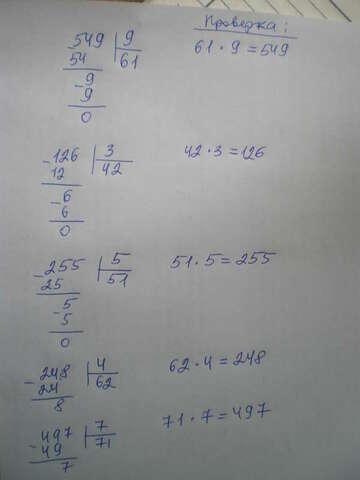 Проверка:
549 | 9
54 | 61
- 9
9
0
61 · 9 = 549
- 126 | 3
12 | 42
- 6
6
0
42 · 3 = 126
- 255 | 5
25 | 51
- 5
5
0
51 · 5 = 255
- 248 | 4
24 | 62
8
62 · 4 = 248
- 497 | 7
49 | 71
7
71 · 7 = 497